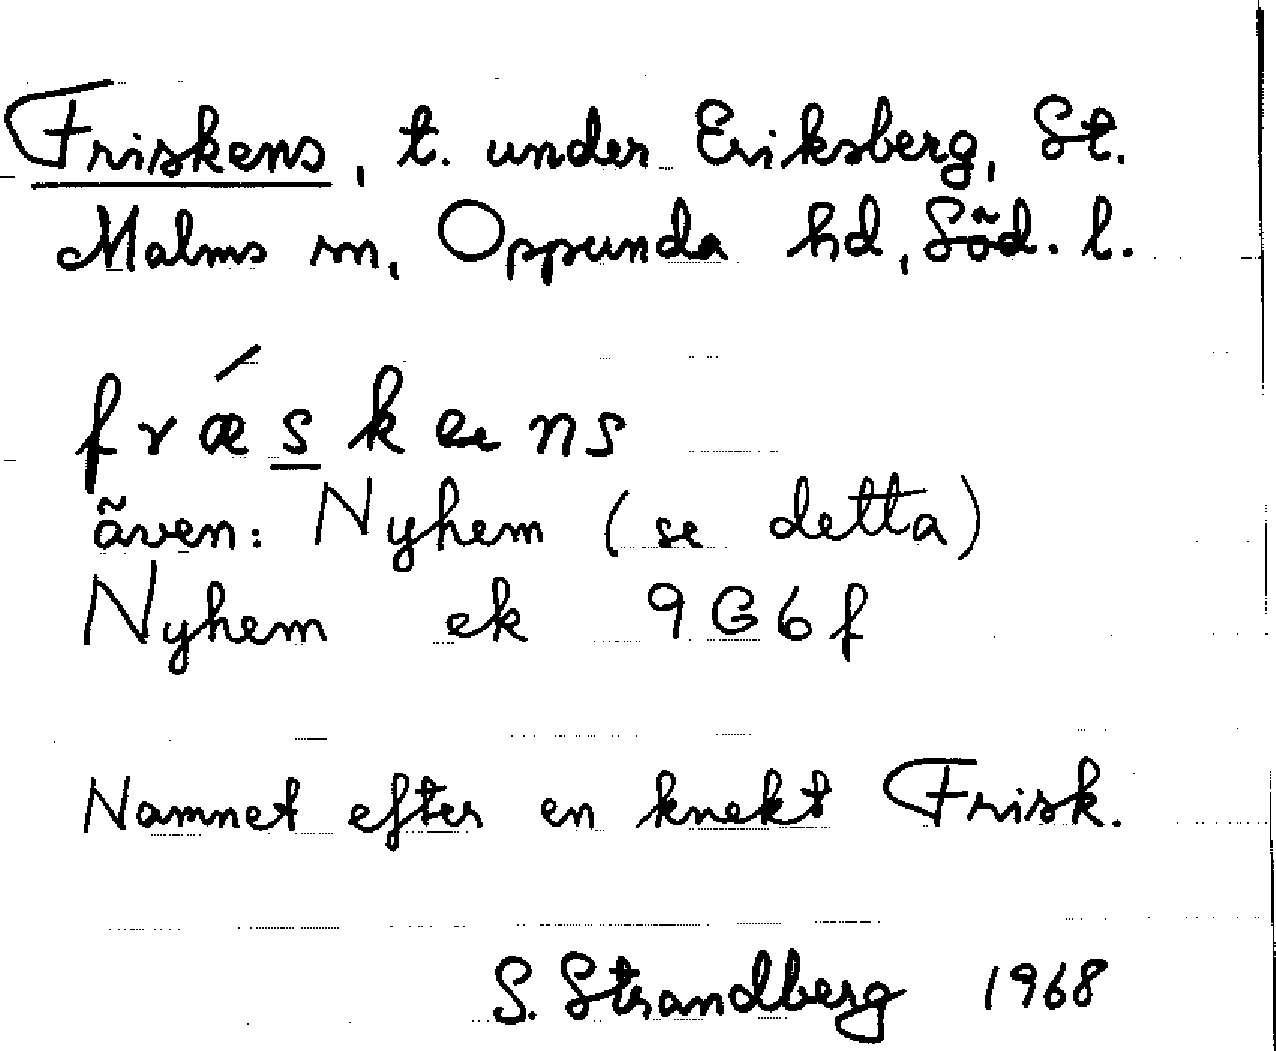 Friskens, t. under Eriksberg, St.
Malms sn, Oppunda hd, Söd. l.
frǽskens
även: Nyhem (se detta)
Nyhem ek 9G6f
Namnet efter en knekt Frisk.
S. Strandberg 1968